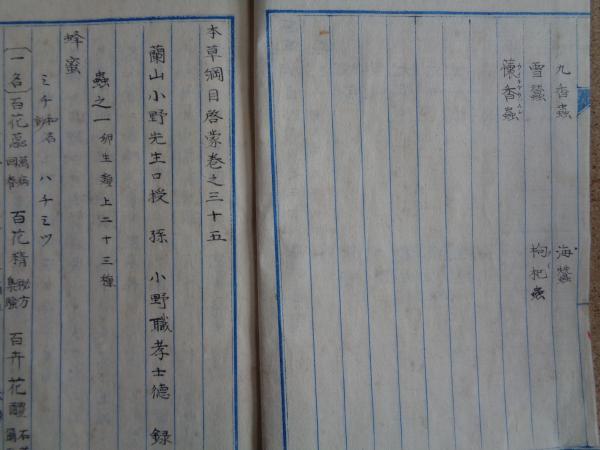 九香蟲 海蠶
雪蠶 枸杞蟲
懷香蟲
本草綱目啓蒙巻之三十五
蘭山小野先生口授 孫 小野職孝士德 録
蟲之一 卵生類上二十三種
蜂蜜
ミチ 和名鈔 ハチミツ
〔一名〕百花蕊 萬病回春 百花精 秘方集驗 百卉花醴